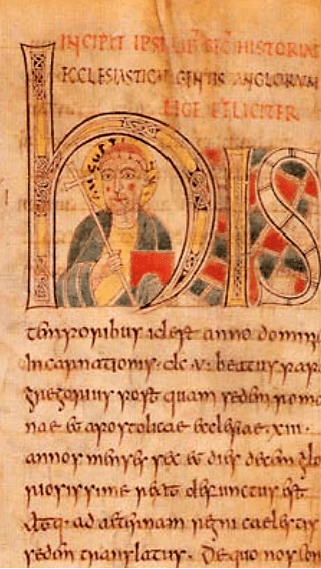 INCIPIT HISTORIA
ECCLESIASTICAE GENTIS ANGLORUM
LEGE FELICITER
AUGUSTI
hIS
temporibus id est anno domini
incarnationis · dc · v · beatus pap
gregorius post quam sedem roma
nae et apostolicae ecclesiae · xiii ·
annos menses sex et dies decem glo
riosissime rexit defunctus est
Atq· ad aeternam regni caelestis
sedem translatus · De quo nos con